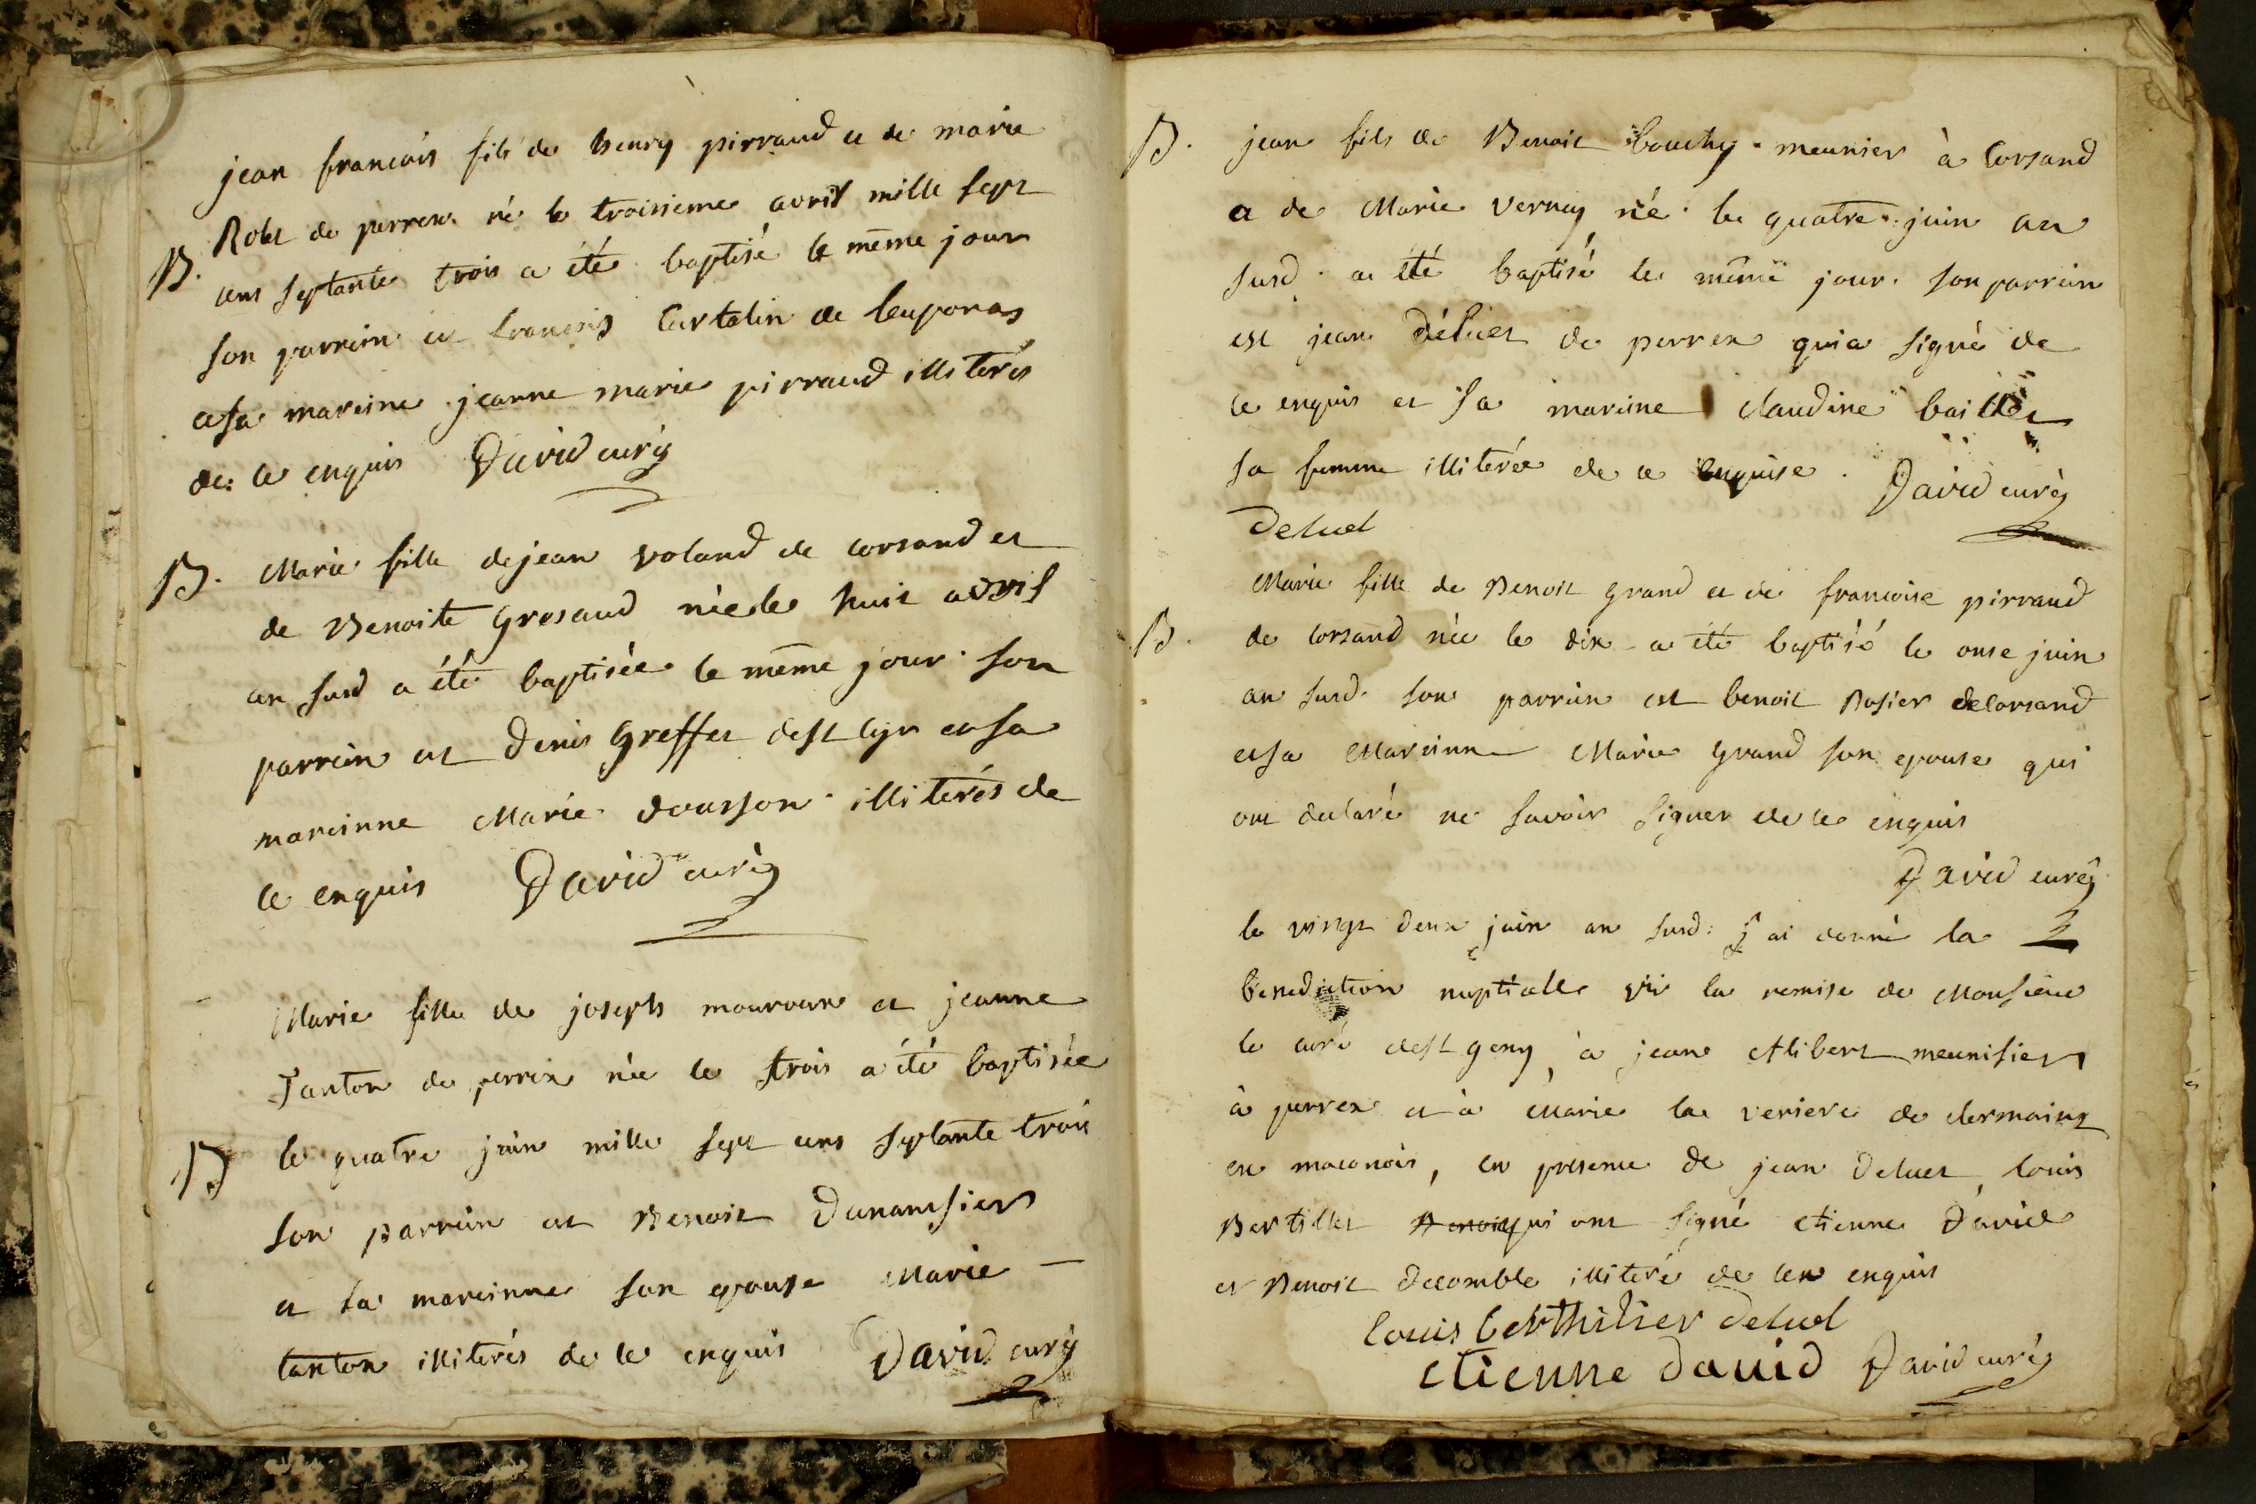 jean francois fils de henry pirraud et de marie
Robet de perrex né le troisieme avril mille sept
B. cens septante trois a été baptisé le même jour
son parrein est francois Curtalin de leuponas
et sa mareine jeanne marie pirraud illiterés
de ce enquis David curé
B. Marie fille de jean voland de corsand et
de Benoite Grosaud née le huit avril
an susd a été baptisée le même jour son
parrein est denis Greffet de st Cyr et sa
mareinne Marie dousson illiterés de
ce enquis David curé
Marie fille de joseph mouroux et jeanne
Tanton de perrex née le trois a été baptisée
B le quatre juin mille sept cens septante trois
son parrein est Benoit Dananssier
et sa mareinne son epouse Marie –
tanton illiterés de ce enquis David curé
B. jean fils de Benoit bouchy meunier à Corsand
et de Marie Vernay né le quatre juin an
susd. a été baptisé le même jour. son parrein
est jean déluet de perrex qui a signé de
ce enquis et sa mareine Claudine baillet
sa femme illiterée de ce enquise. David curé
Deluel
Marie fille de Benoit grand et de francoise pirraud
B. de Corsand née le dix a été baptisé le onse juin
an susd. son parrein est benoit Rosier de Corsand
et sa Mareinne Marie Grand son epouse qui
ont declaré ne savoir signer de ce enquis
David curé
le vingt deux juin an susd: j'ai donné la
benediction nuptialle vû la remise de Monsieur
le curé de st geny, à jean Alibert meunisier
à perrex et à Marie la veriere de clermaing
en maconois, en presence de jean Deluet, louis
Bertillet Benoit qui ont signé etienne David
et Benoit Decomble illiteré de ce enquis
louis berthilier Deluel
etienne david David curé